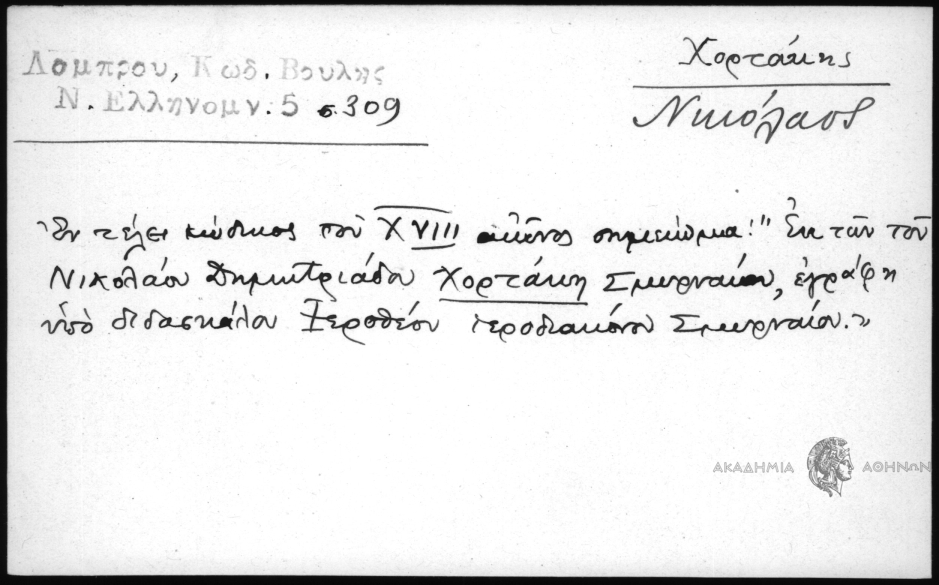 Λαμπρου, Κωδ. Βουλης
Ν. Ελληνομν. 5 σ. 309
Χορτάκης
Νικόλαος
Ἐν τέλει κώδικος τοῦ XVIII αἰῶνος σημείωμα: "Ἐκ τῶν τοῦ
Νικολάου Δημητριάδου Χορτάκη Σμυρναίου, ἐγράφη
ὑπὸ διδασκάλου Ἱεροθέου ἱεροδιακόνου Σμυρναίου."
ΑΚΑΔΗΜΙΑ ΑΘΗΝΩΝ